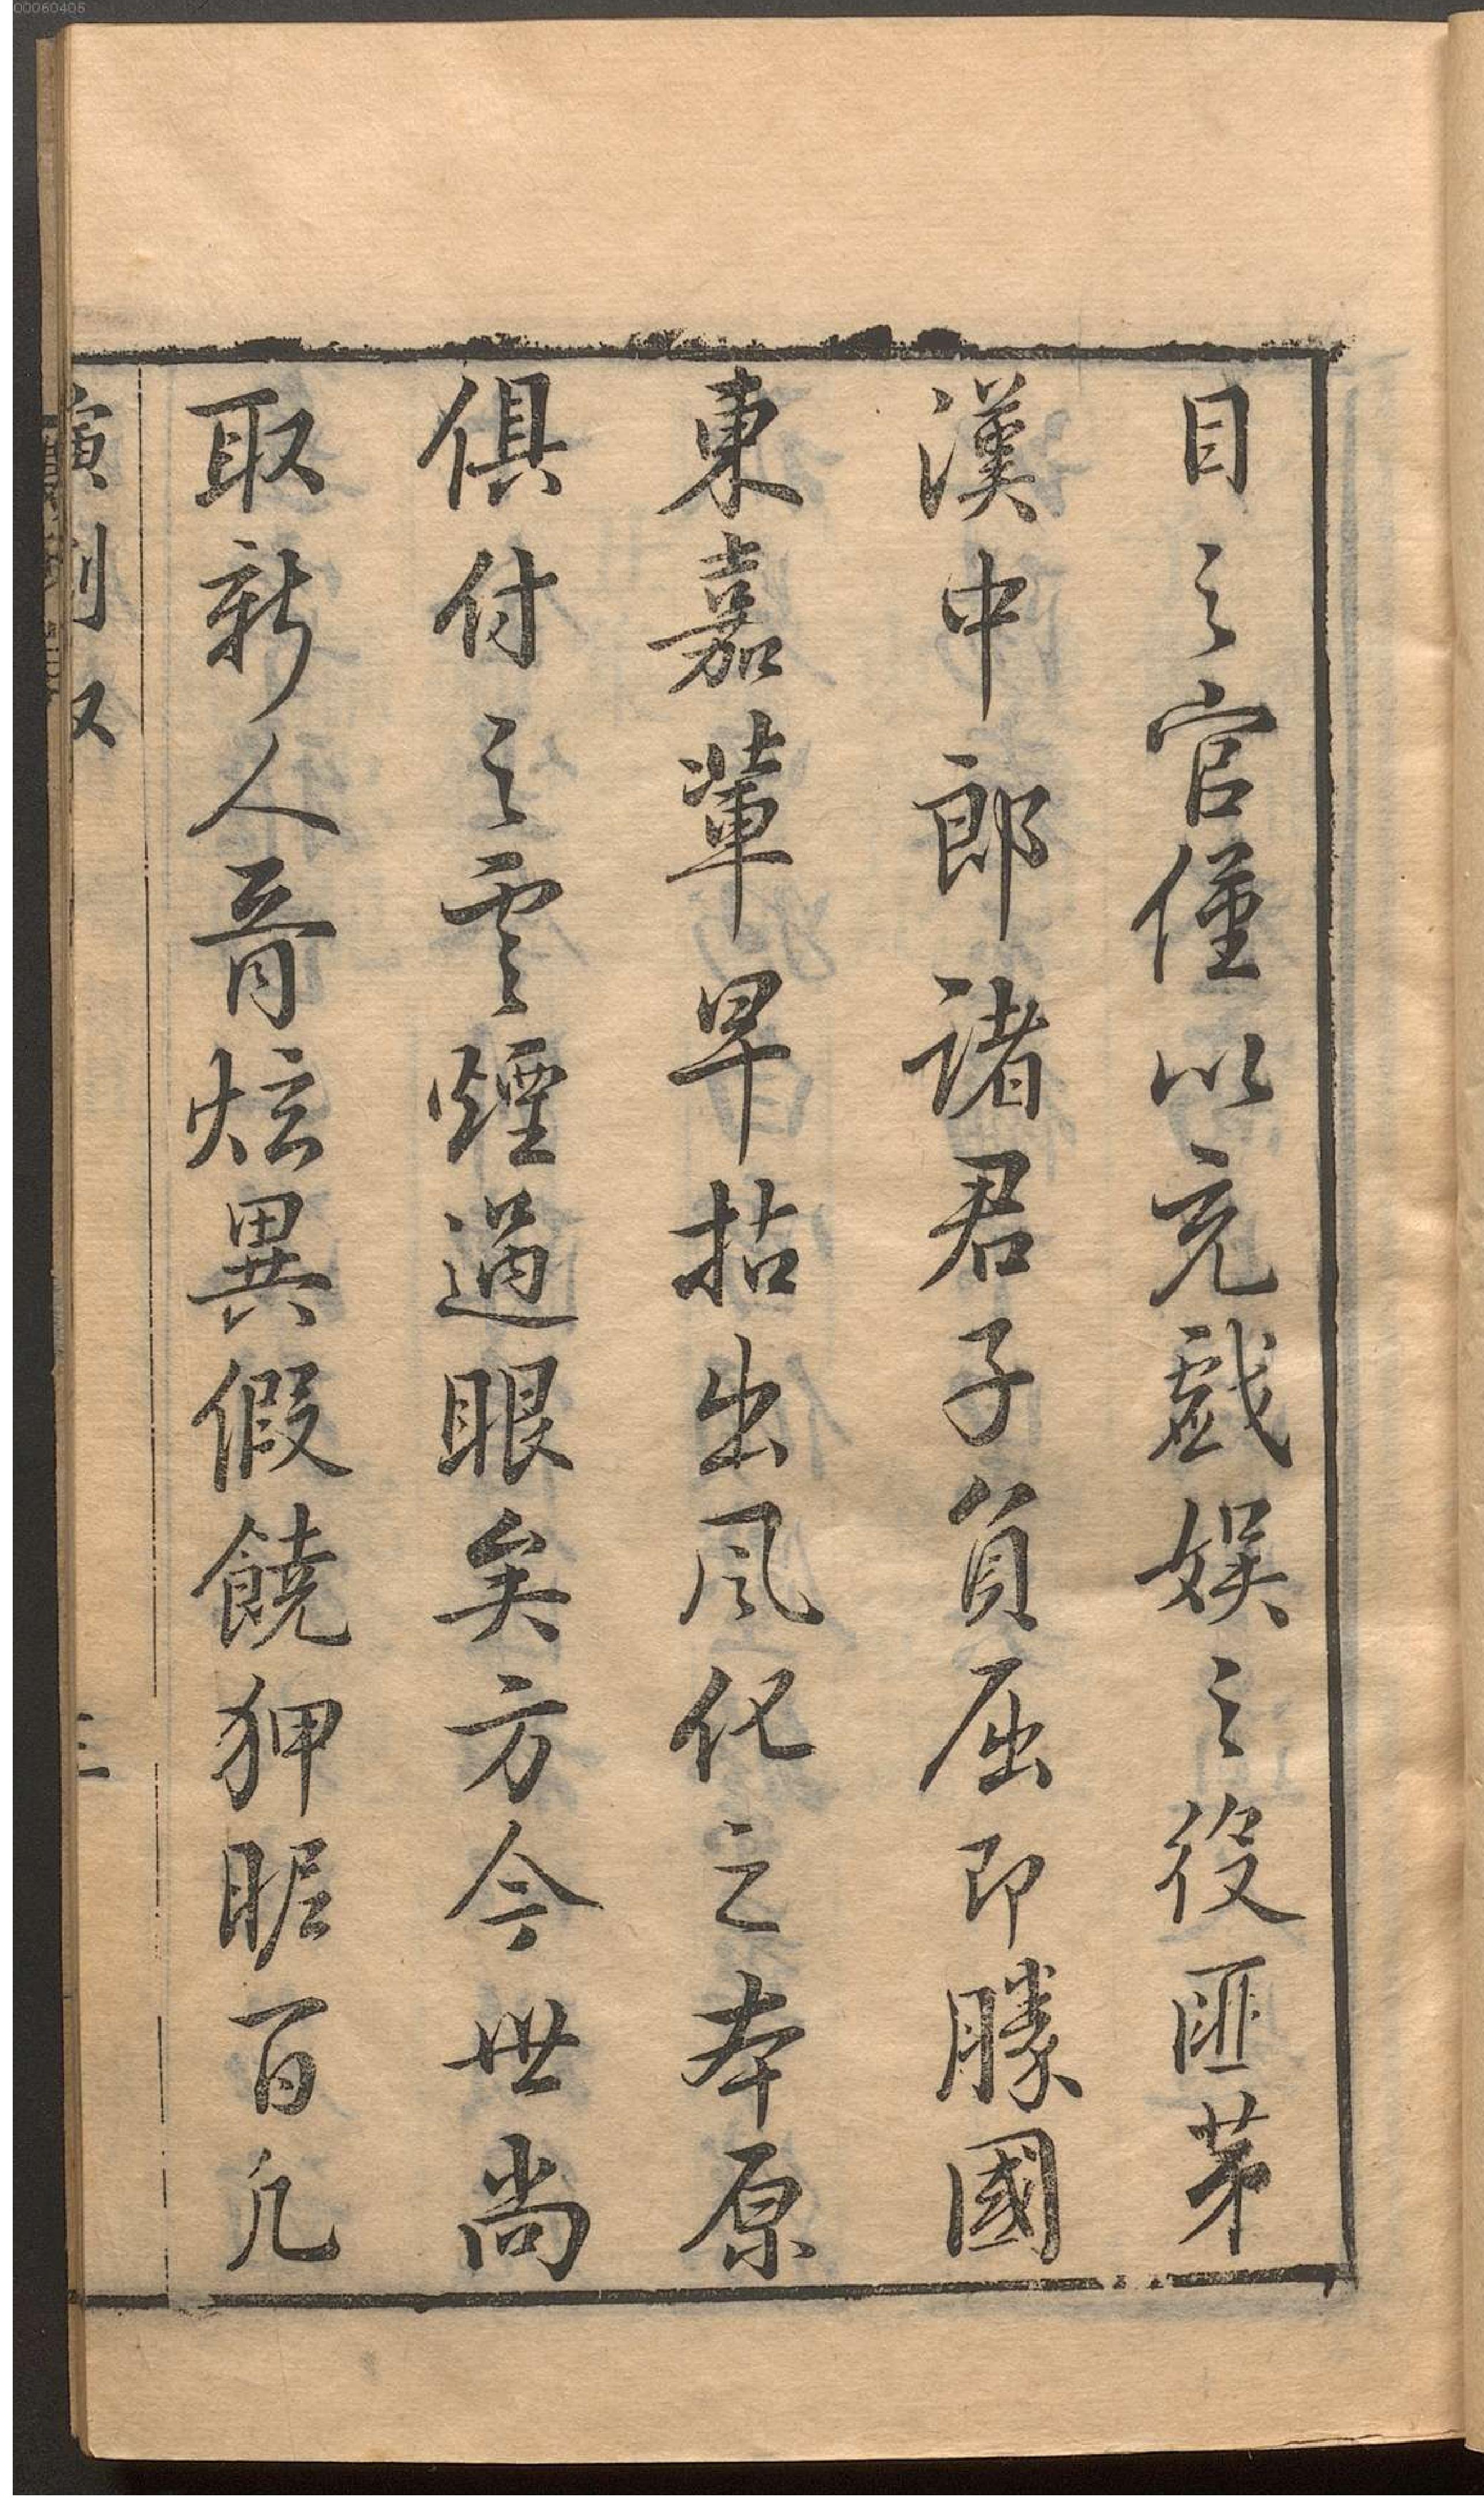 00060406
目之官僅以充戲娛之役匪苐
漢中郎諸君子負屈即勝國
東嘉輩早拈出風化之本原
俱付之雲煙過眼矣方今世尚
取新人胥炫異假饒狎昵百凡